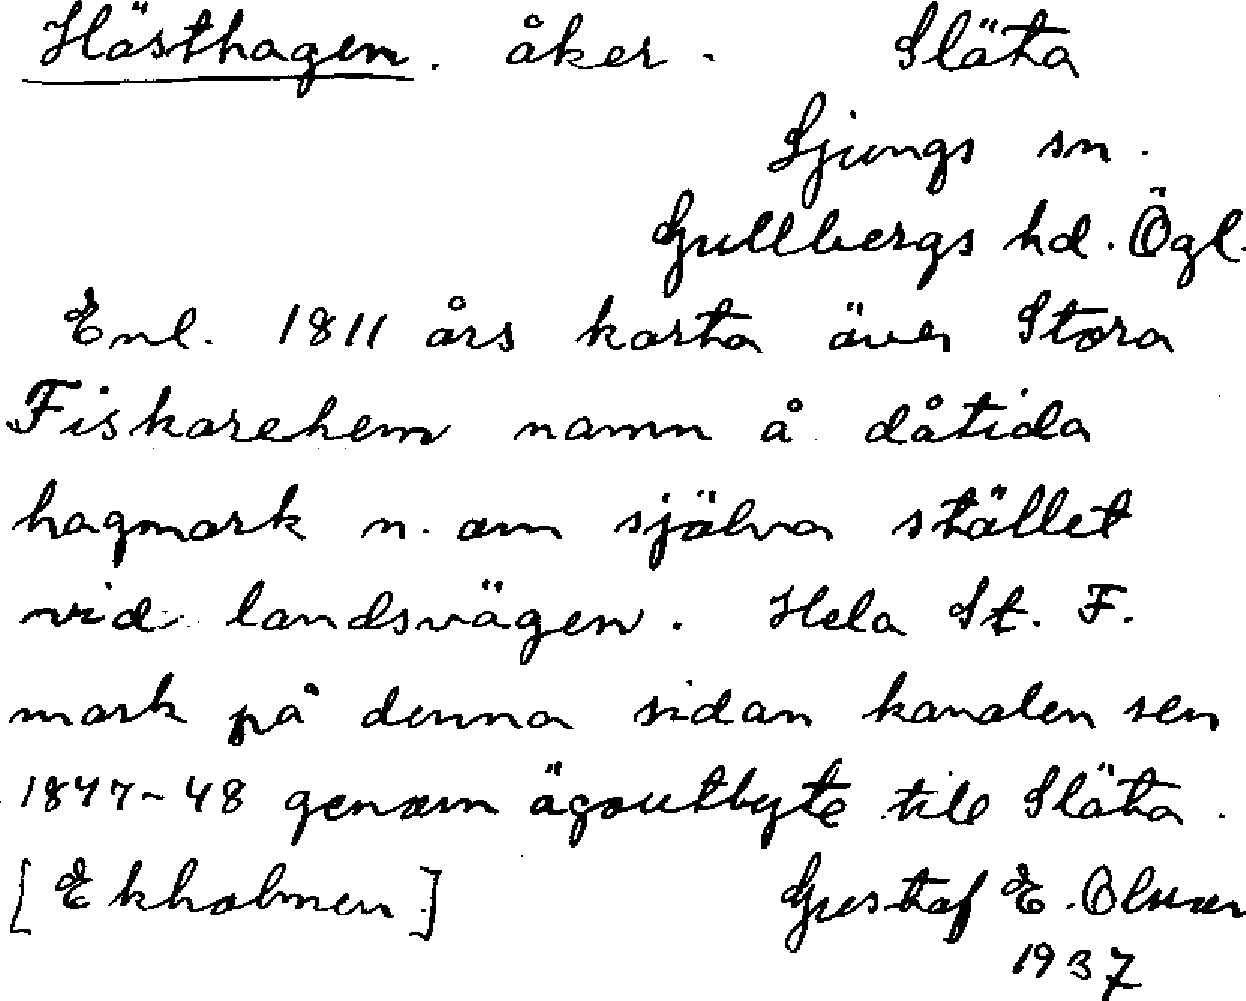 Hästhagen. åker. Släta
Ljungs sn.
Gullbergs hd. Ögl.
Enl. 1811 års karta över Stora
Fiskarehem namn å dåtida
hagmark n. om själva stället
vid landsvägen. Hela St. F.
mark på denna sidan kanalen sen
1847-48 genom ägoutbyte till Släta.
[Ekholmen] Gustaf E. Olsson
1937